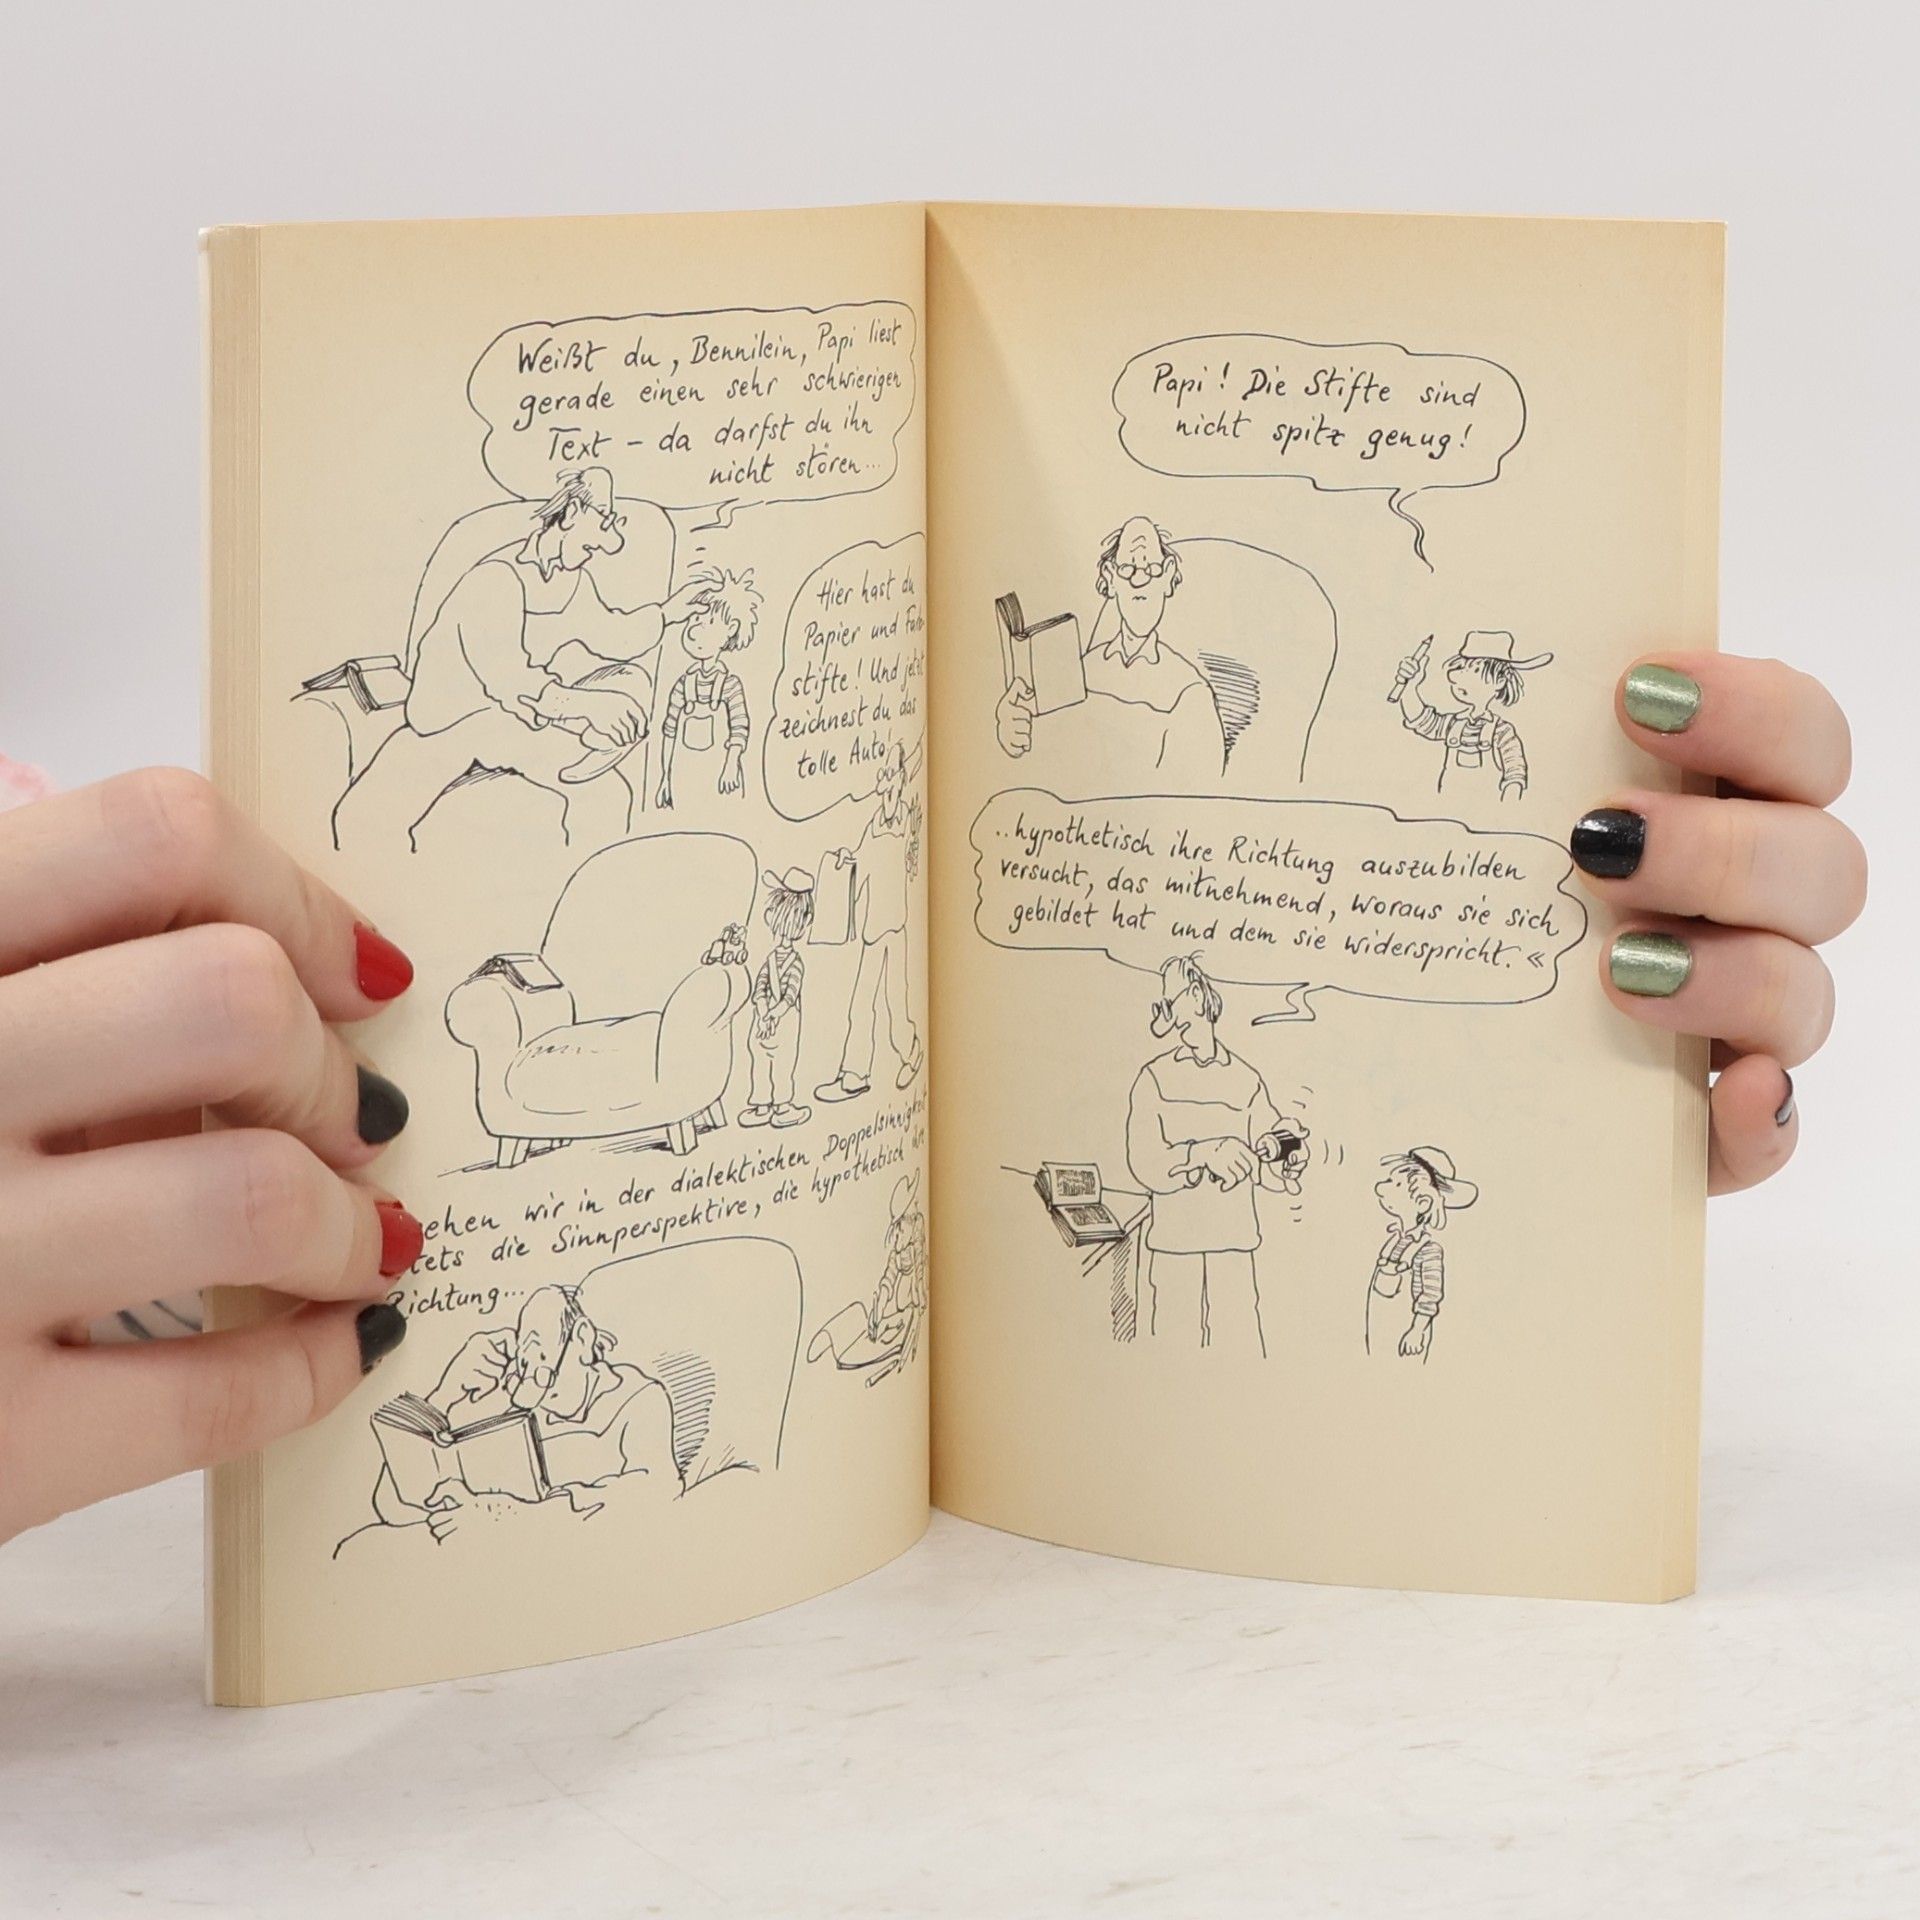 Weißt du, Bennilein, Papi liest
gerade einen sehr schwierigen
Text - da darfst du ihn
nicht stören...
Hier hast du
Papier und
stifte! Und jetzt
zeichnest du das
tolle Auto!
wir in der dialektischen Doppelsinnigkeit
die Sinnperspektive, die hypothetisch ihre
Richtung...
Papi! Die Stifte sind
nicht spitz genug!
..hypothetisch ihre Richtung auszubilden
versucht, das mitnehmend, woraus sie sich
gebildet hat und dem sie widerspricht. «